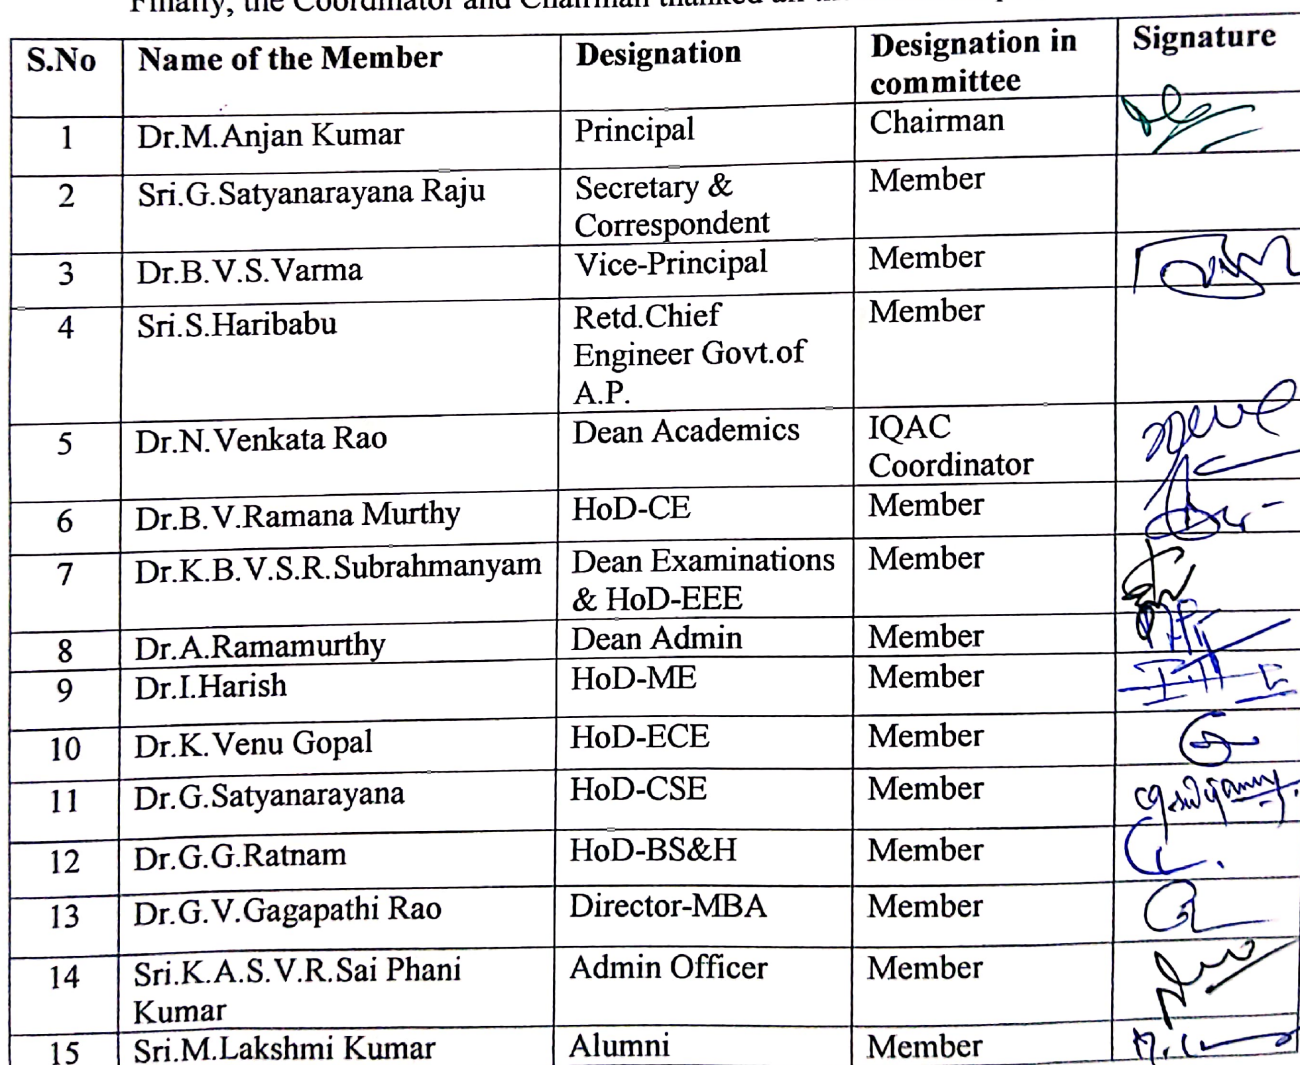 Finally, the Coordinator and Chairman thanked all
S.No Name of the Member Designation Designation in committee Signature
1 Dr.M.Anjan Kumar Principal Chairman
2 Sri.G.Satyanarayana Raju Secretary & Correspondent Member
3 Dr.B.V.S.Varma Vice-Principal Member
4 Sri.S.Haribabu Retd.Chief Engineer Govt.of A.P. Member
5 Dr.N.Venkata Rao Dean Academics IQAC Coordinator
6 Dr.B.V.Ramana Murthy HoD-CE Member
7 Dr.K.B.V.S.R.Subrahmanyam Dean Examinations & HoD-EEE Member
8 Dr.A.Ramamurthy Dean Admin Member
9 Dr.I.Harish HoD-ME Member
10 Dr.K.Venu Gopal HoD-ECE Member
11 Dr.G.Satyanarayana HoD-CSE Member
12 Dr.G.G.Ratnam HoD-BS&H Member
13 Dr.G.V.Gagapathi Rao Director-MBA Member
14 Sri.K.A.S.V.R.Sai Phani Kumar Admin Officer Member
15 Sri.M.Lakshmi Kumar Alumni Member